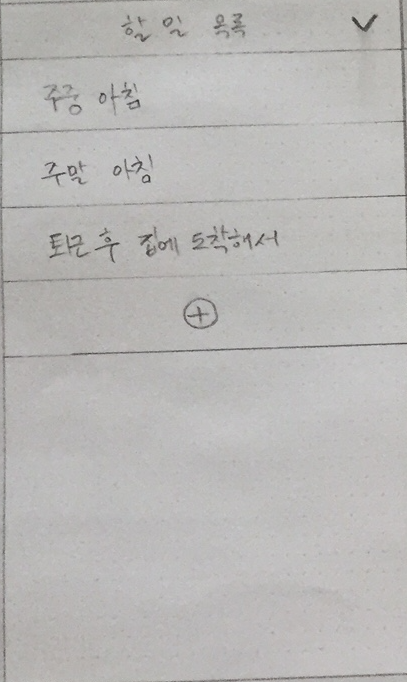 할 일 목록
주중 아침
주말 아침
퇴근 후 집에 도착해서